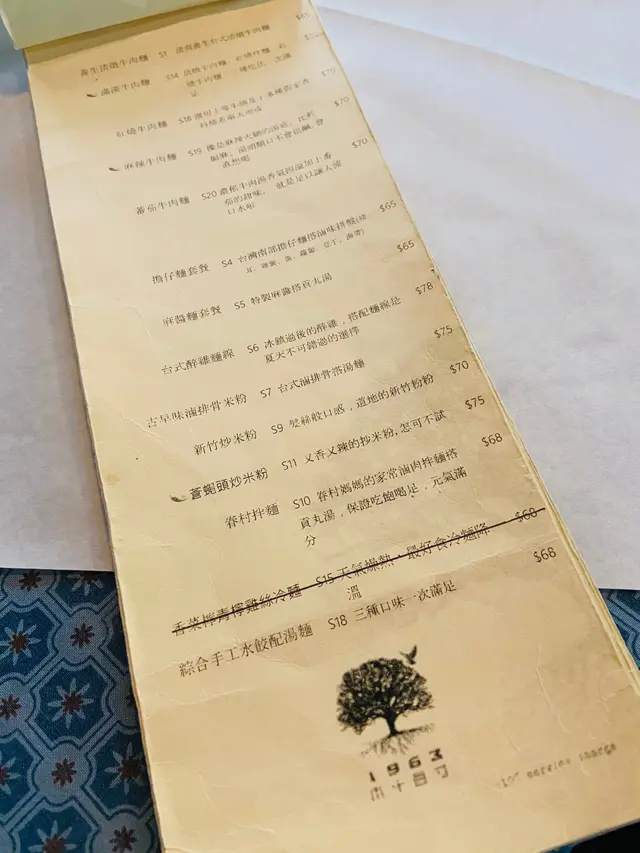 養生清燉牛肉麵 S1 $65
滿漢牛肉麵 S14
紅燒牛肉麵 S18 $70
麻辣牛肉麵 S19 像是麻辣火鍋的湯底，比較 $70
直想喝
蕃茄牛肉麵 S20 濃郁牛肉湯香氣四溢加上蕃 $70
茄的甜味， 就是足以讓人流
口水啦
擔仔麵套餐 S4 台灣南部擔仔麵搭滷味拼盤 $65
麻醬麵套餐 S5 特製麻醬搭貢丸湯 $65
台式醉雞麵線 S6 冰鎮過後的醉雞，搭配麵線是 $78
夏天不可錯過的選擇
古早味滷排骨米粉 S7 台式滷排骨搭湯麵 $75
新竹炒米粉 S9 髮絲般口感，道地的新竹粉粉 $70
蒼蠅頭炒米粉 S11 又香又辣的抄米粉,怎可不試 $75
眷村拌麵 S10 眷村媽媽的家常滷肉拌麵搭 $68
貢丸湯，保證吃飽喝足，元氣滿
分
香菜檸青檸雞絲冷麵 S15 天氣燥熱，最好食冷麵降 $68
溫
綜合手工水餃配湯麵 S18 三種口味一次滿足 $68
1963
10% service charge